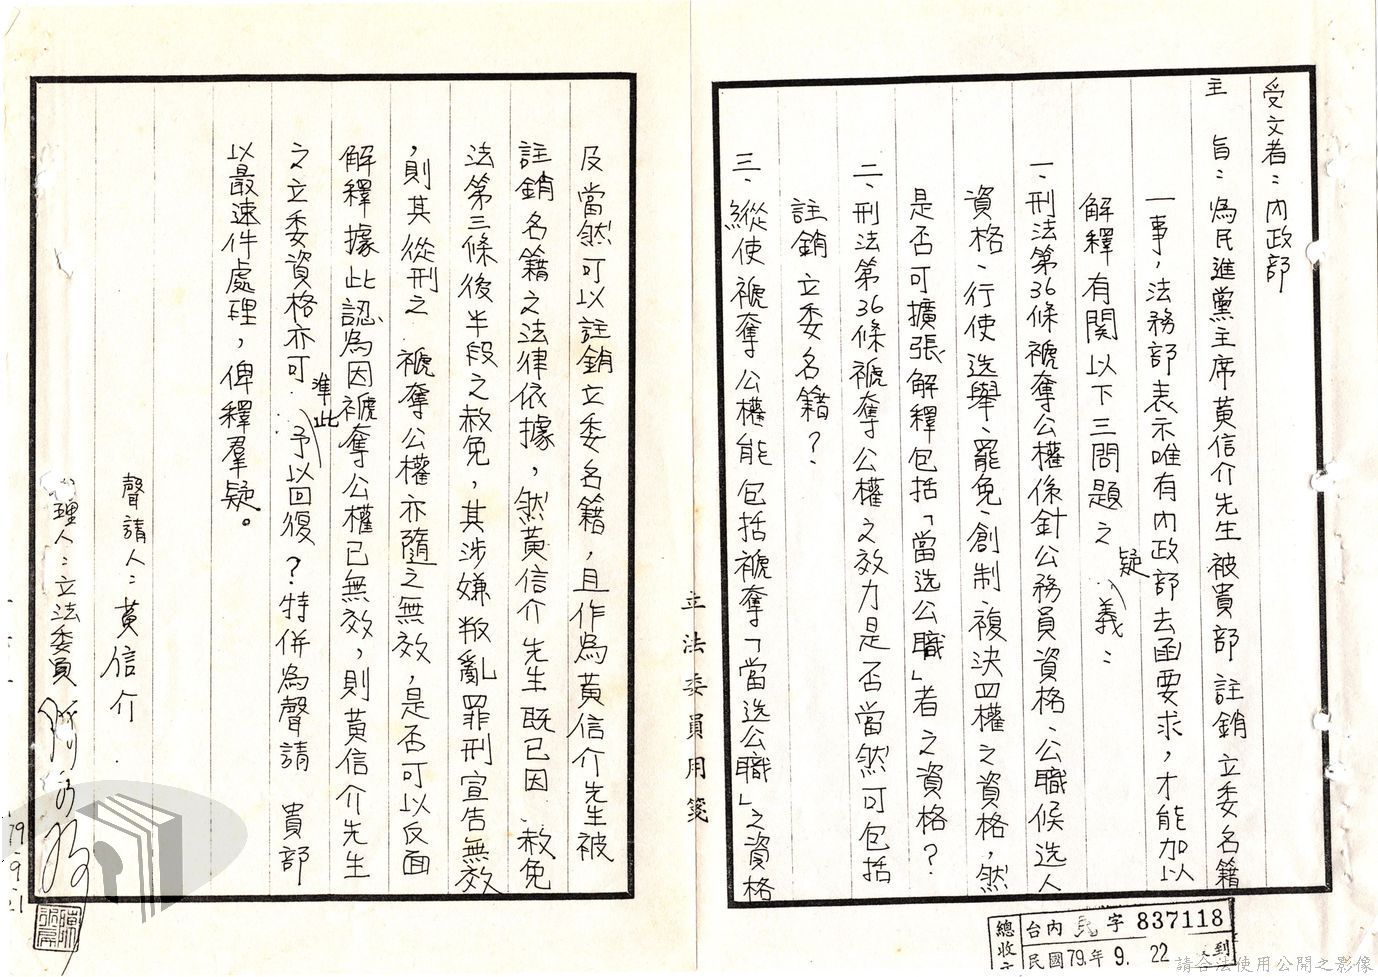 受文者：內政部
主　旨：為民進黨主席黃信介先生被貴部註銷立委名籍
一事，法務部表示唯有內政部去函要求，才能加以
解釋有関以下三問題之疑義：
一、刑法第36條褫奪公權係針公務員資格、公職候选人
資格、行使选舉、罷免、創制、複決四權之資格，然
是否可擴張解釋包括「當选公職」者之資格？
二、刑法第36條褫奪公權之效力是否當然可包括
註銷立委名籍？
三、縱使褫奪公權能包括褫奪「當选公職」之資格
及當然可以註銷立委名籍，且作為黃信介先生被
註銷名籍之法律依據，然黃信介先生既已因赦免
法第三條後半段之赦免，其涉嫌叛亂罪刑宣告無效
，則其從刑之褫奪公權亦隨之無效，是否可以反面
解釋據此認為因褫奪公權已無效，則黃信介先生
之立委資格亦可準此予以回復？特併為聲請　貴部
以最速件處理，俾釋羣疑。
聲請人：黃信介
理人：立法委員
79.9.21
立法委員用箋
總收文
台內民字837118
民國79.年9.22到
請合法使用公開之影像